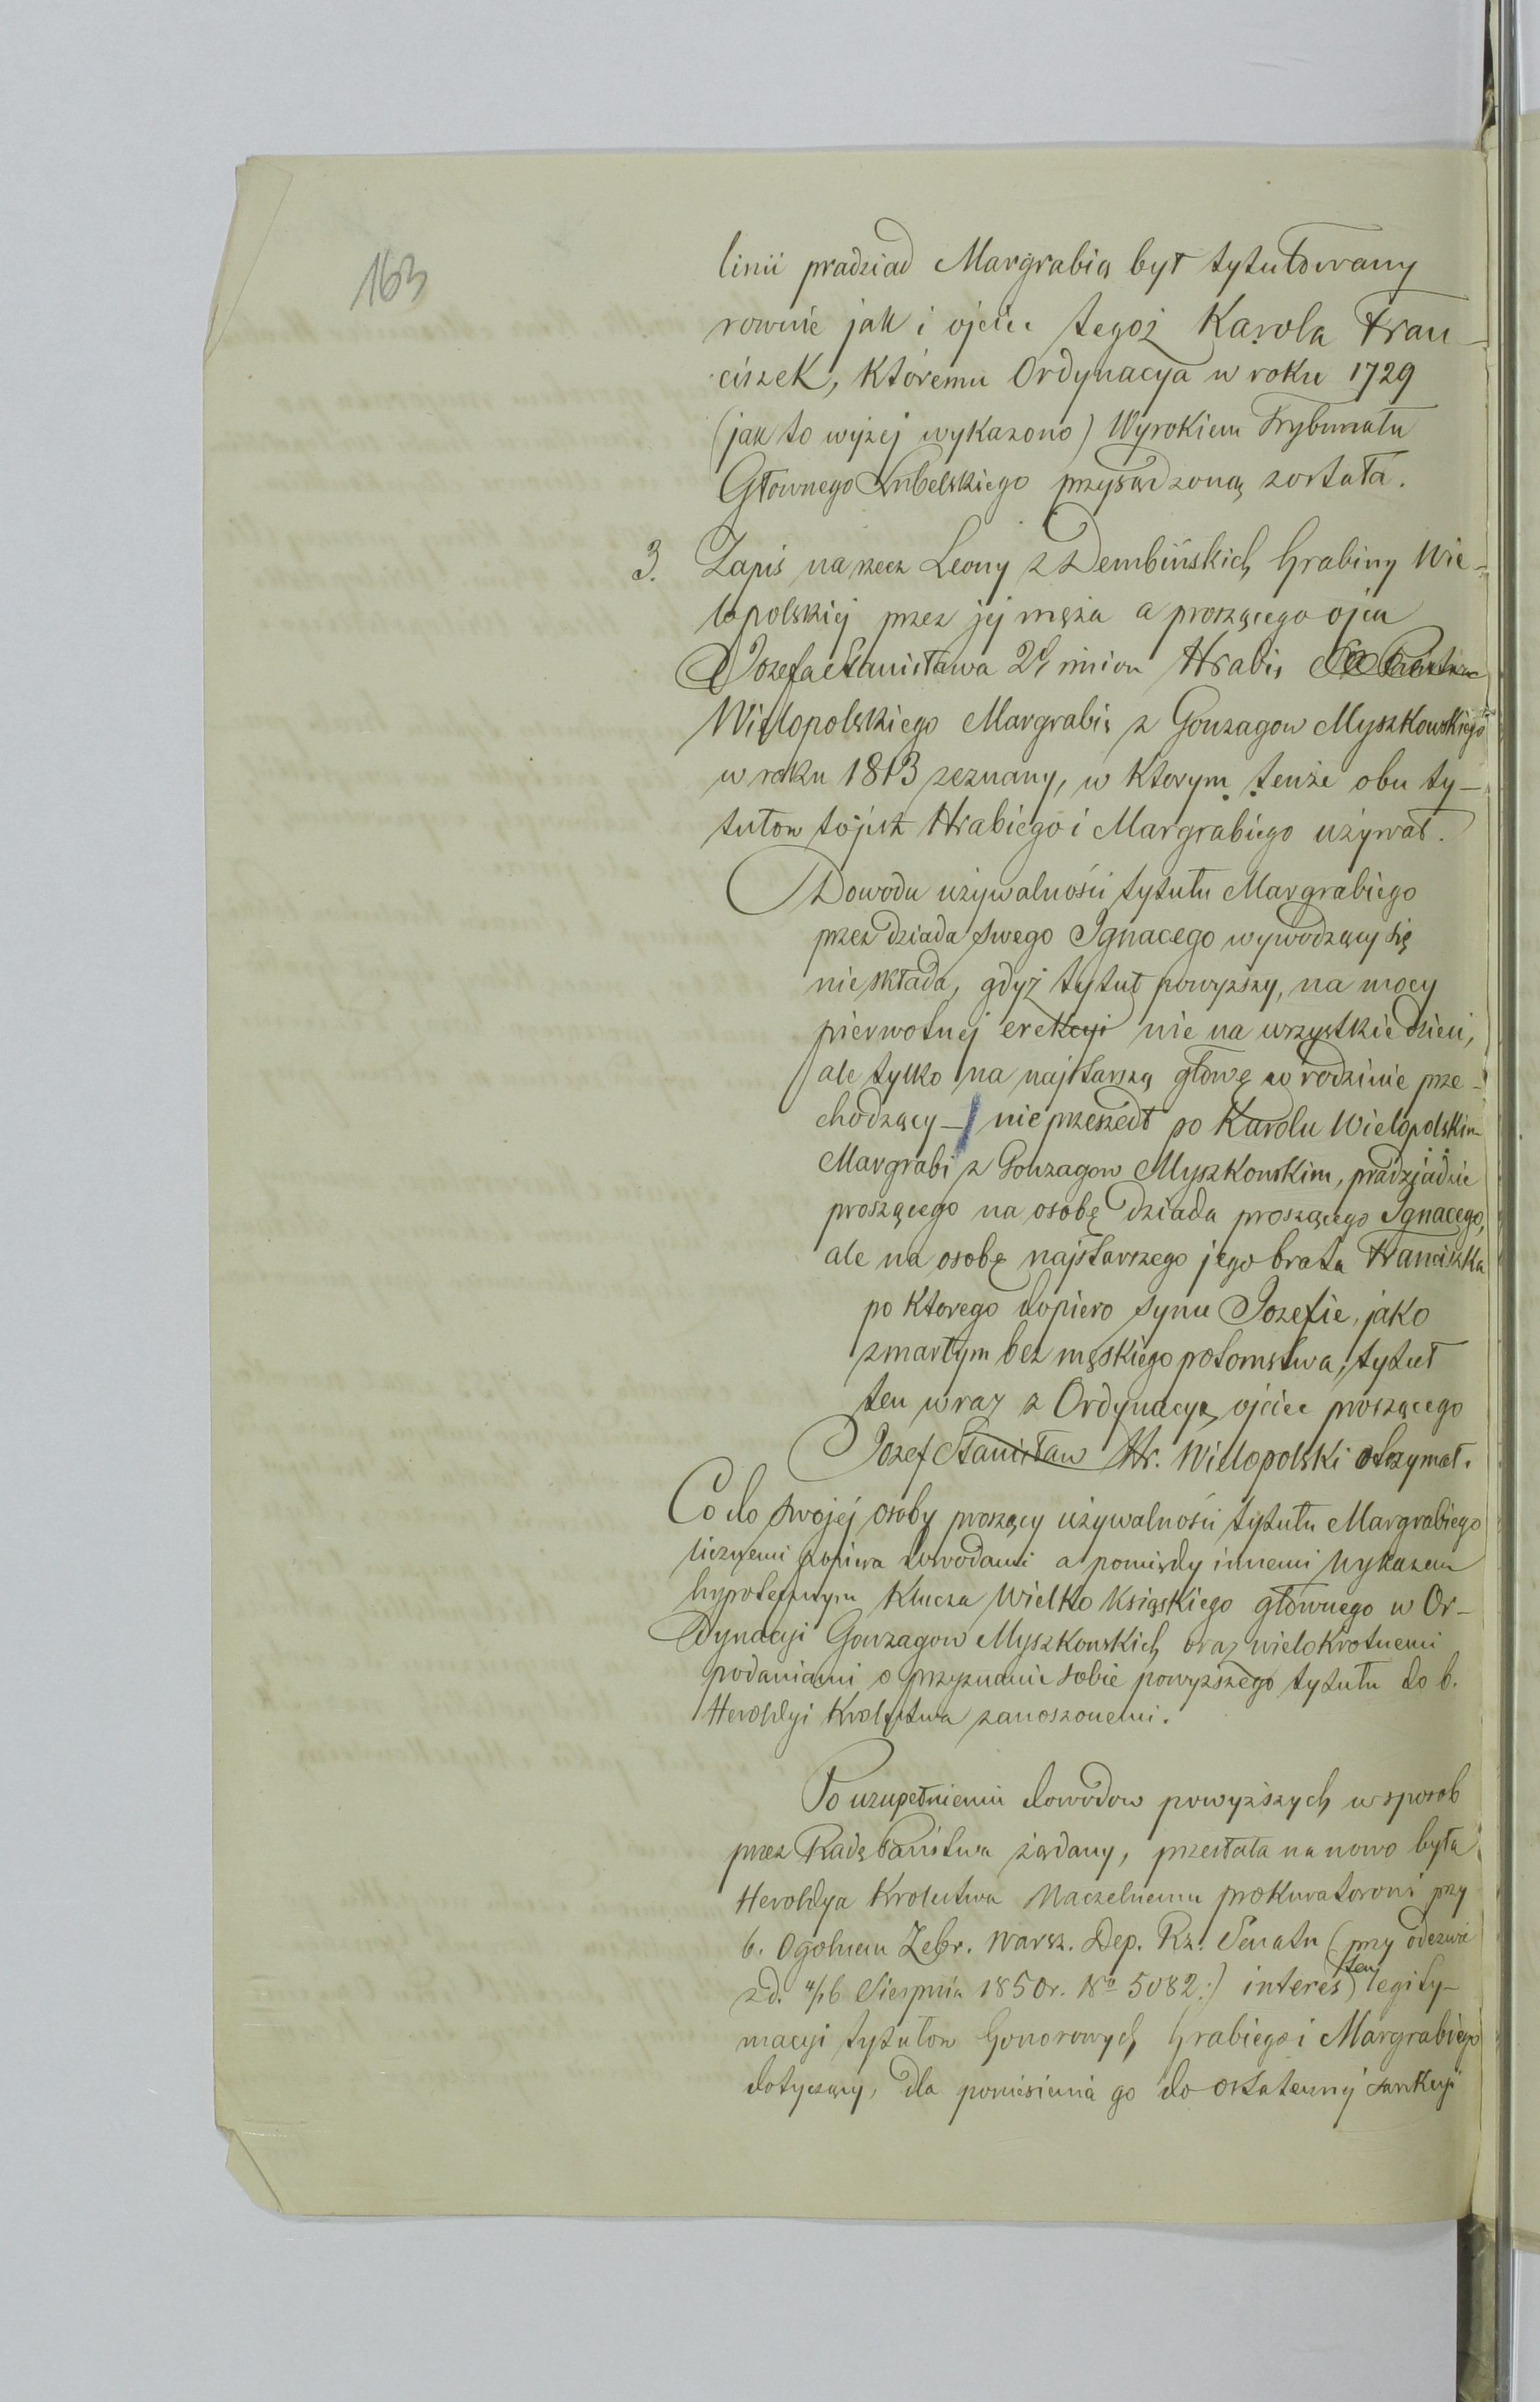 163
linii pradziad Margrabią był tytułowany
rownie jak i ojciec tegoż Karola Fran-
ciszek, któremu Ordynacya w roku 1729
(jak to wyżej wykazono) Wyrokiem Trybunału
Głownego Lubelskiego przysądzoną została.
3. Zapis na rzecz Leony z Dembińskich Hrabiny Wie-
lopolskiej przez jej męża a proszącego ojca
Jozefa Stanisława 2ga imion Hrabię
Wielopolskiego Margrabię z Gonzagow Myszkowskiego
w roku 1813 zeznany, w ktorym tenże obu ty-
tułow to jest Hrabiego i Margrabiego używał.
Dowodu używalności tytułu Margrabiego
przez dziada swego Ignacego wywodzący się
nie składa, gdyż tytuł powyższy, na mocy
pierwotnej erekcyi nie na wszystkie dzieci,
ale tylko na najstarszą głowę w rodzinie prze-
chodzący - nie przeszedł po Karolu Wielopolskim
Margrabi z Gonzagow Myszkowskim, pradziadzie
proszącego na osobę dziada proszącego Ignacego,
ale na osobę najstarszego jego brata Franciszka
po ktorego dopiero synu Jozefie, jako
zmarłym bez męskiego potomstwa, tytuł
ten wraz z Ordynacyą ojciec proszącego
Jozef Stanisław Hr. Wielopolski otrzymał.
Co do swojej osoby proszący używalności tytułu Margrabiego
licznemi popiera dowodami a pomiędzy innemi Wykazem
hypotecznym Klucza Wielko Książskiego głównego w Or-
dynacyi Gonzagow Myszkowskich oraz wielokrotnemi
podaniami o przyznanie sobie powyższego tytułu do b.
Heroldyi Krolestwa zanoszonemi.
Po uzupełnieniu dowodow powyższych w sposob
przez Radę Państwa żądany, przesłała na nowo była
Heroldya Krolestwa Naczelnemu prokuratorowi przy
b. Ogolnem Zebr. Warsz. Dep. Rz. Senatu (przy odezwie
z d. 4/16 Sierpnia 1850 r. No 5082.) interes ten legity-
macyi tytułow honorowych Hrabiego i Margrabiego
dotyczący, dla poniesienia go do ostatecznej sankcyi